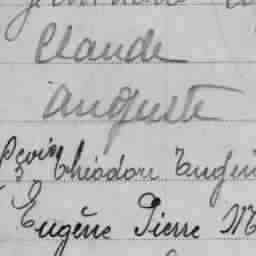 Claude
Auguste
Théodore Eugèn
Eugène Pierre M